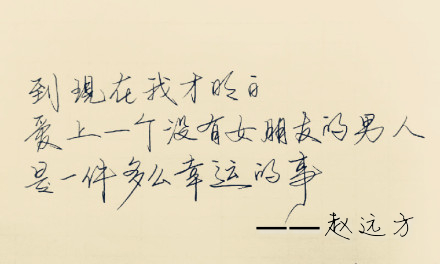 到现在我才明白
爱上一个没有女朋友的男人
是一件多么幸运的事
——赵远方